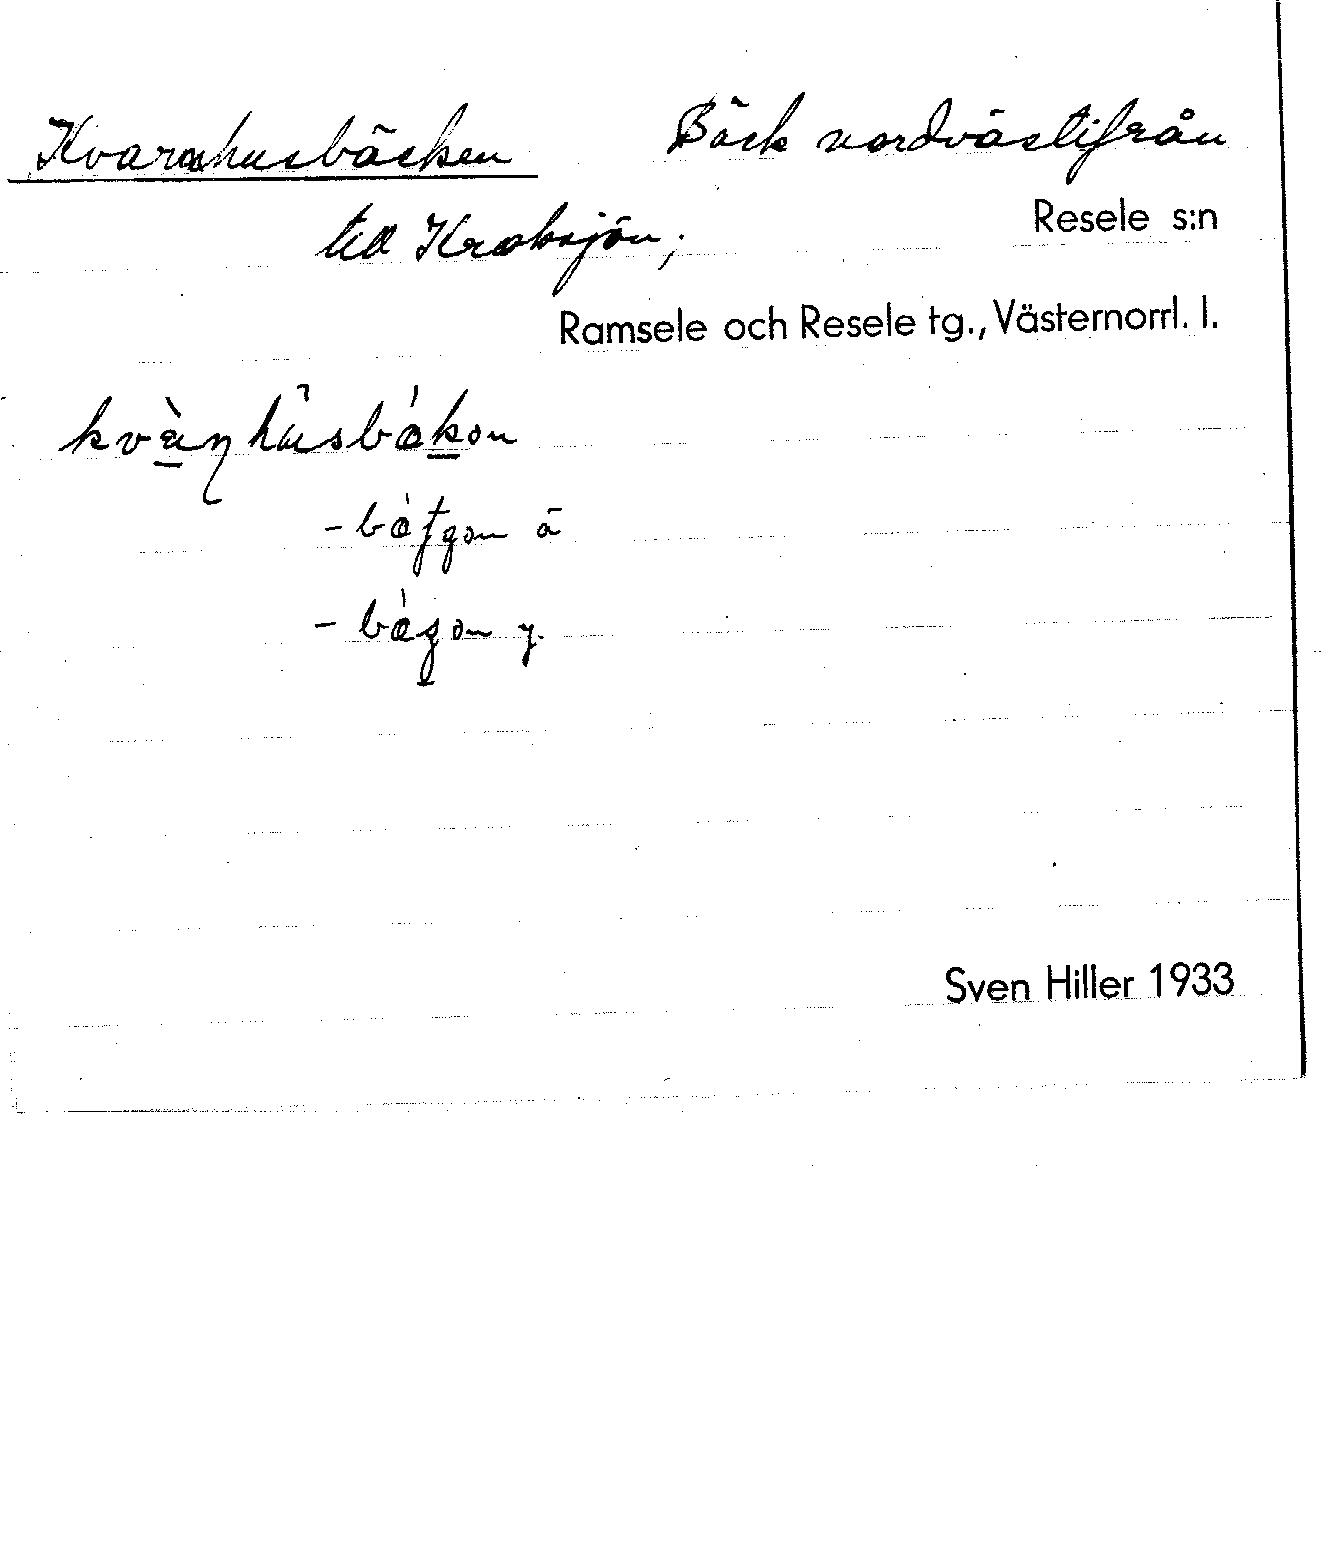 Kvarnhusbäcken Bäck nordvästifrån
till Krabsjön;
Resele s:n
Ramsele och Resele tg., Västernorrl. l.
-bátgon ä
-bágon y.
Sven Hiller 1933